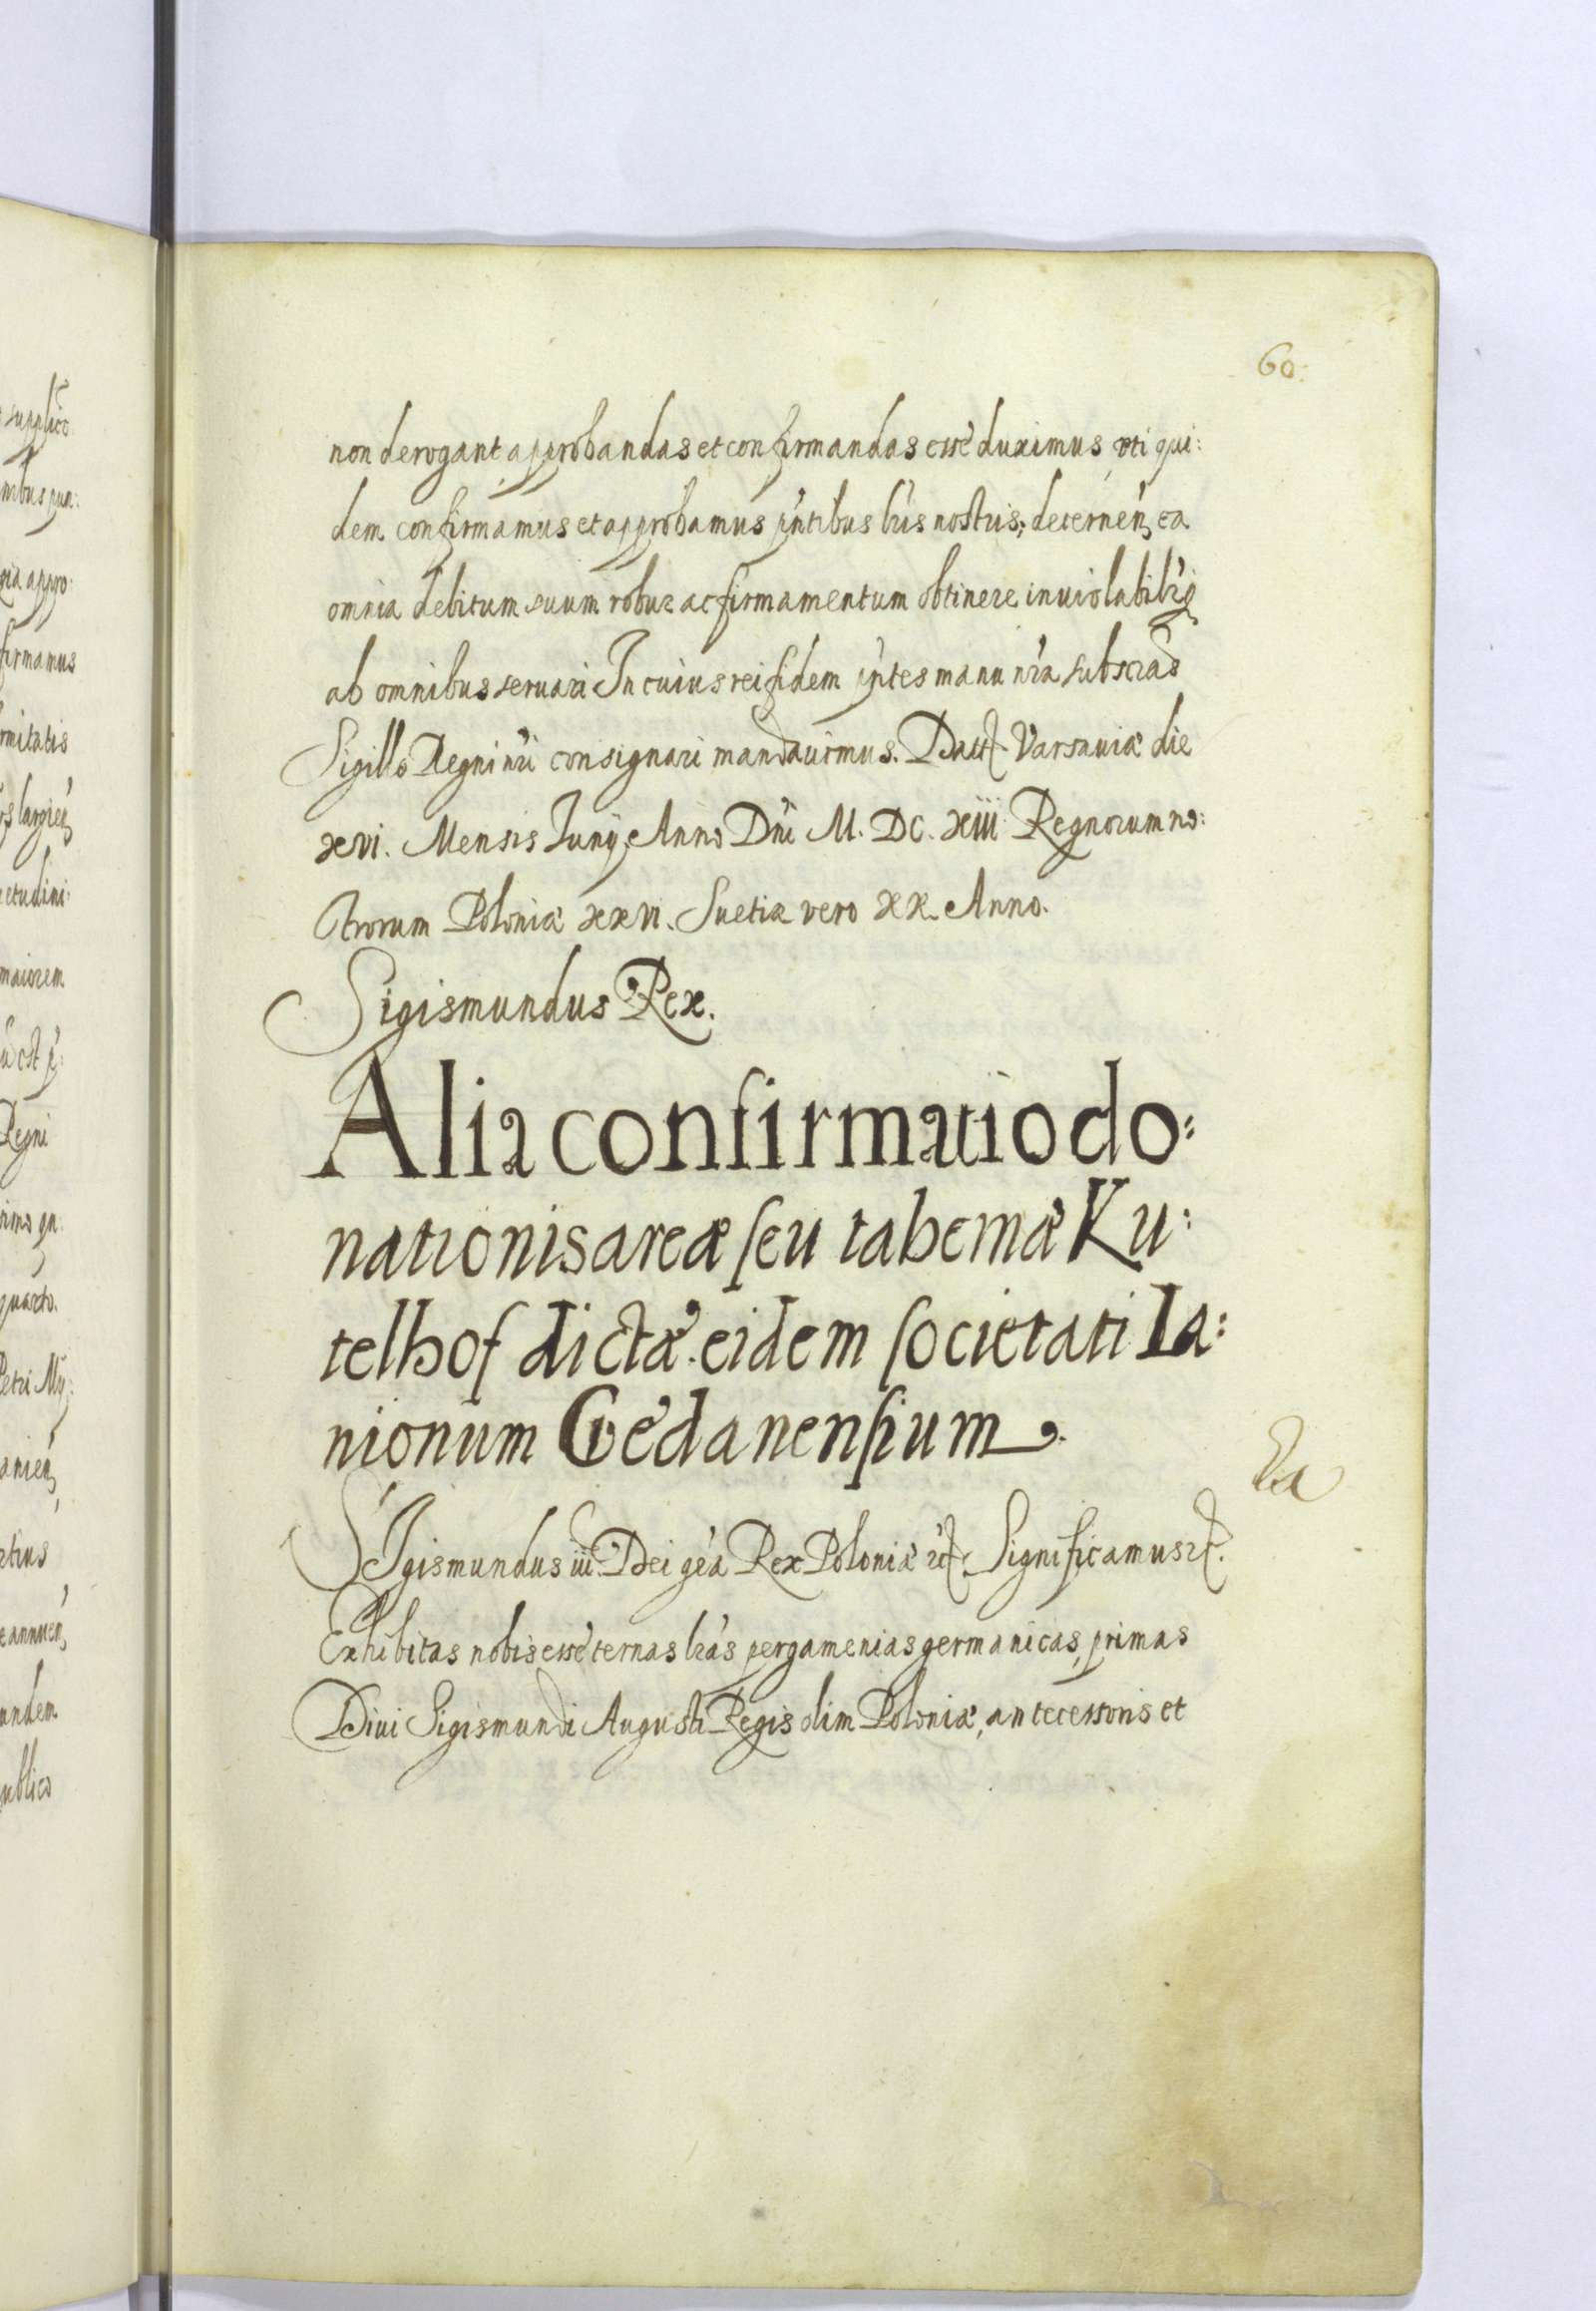 60.
non derogant approbandas et confirmandas esse duximus, uti qui:
dem confirmamus et approbamus pntibus lris nostris, decernen, ea
omnia debitum suum robur ac firmamentum obtinere inviolabilrq
ab omnibus servari In cuius rei fidem pntes manu nra subscras
Sigillo Regni nri consignari mandavimus. Datt Varsaviæ die
xvi. Mensis Junij Anno Dni M. DC. xiii Regnorum no:
strorum Poloniæ xxvi. Suetiæ vero xx. Anno.
Sigismundus Rex.
Alia confirmatio do:
nationis areæ seu tabernæ Ku:
telhof dictæ eidem societati La:
nionum Gedanensium.
SIgismundus iii. Dei gra Rex Poloniæ etc. Significamus etc.
Exhibitas nobis esse ternas lras pergamenias germanicas, primas
Divi Sigismundi Augusti Regis olim Poloniæ, antecessoris et